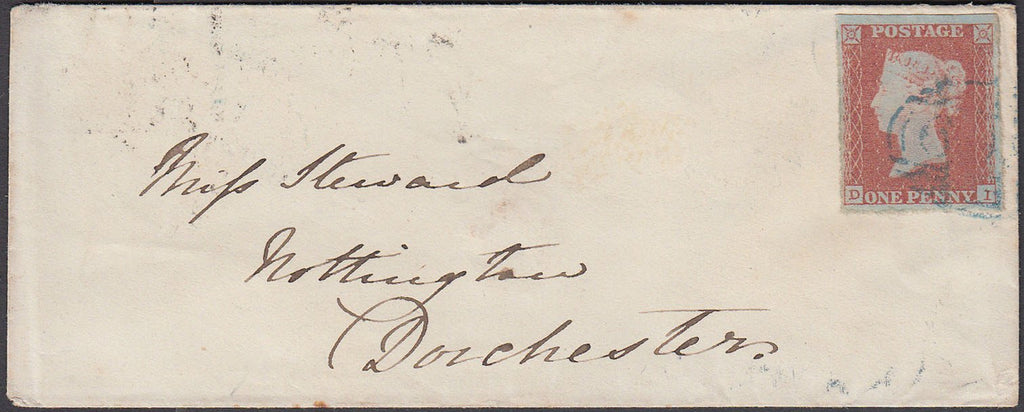 POSTAGE
D ONE PENNY I
Miss Steward
Nottington
Dorchester.